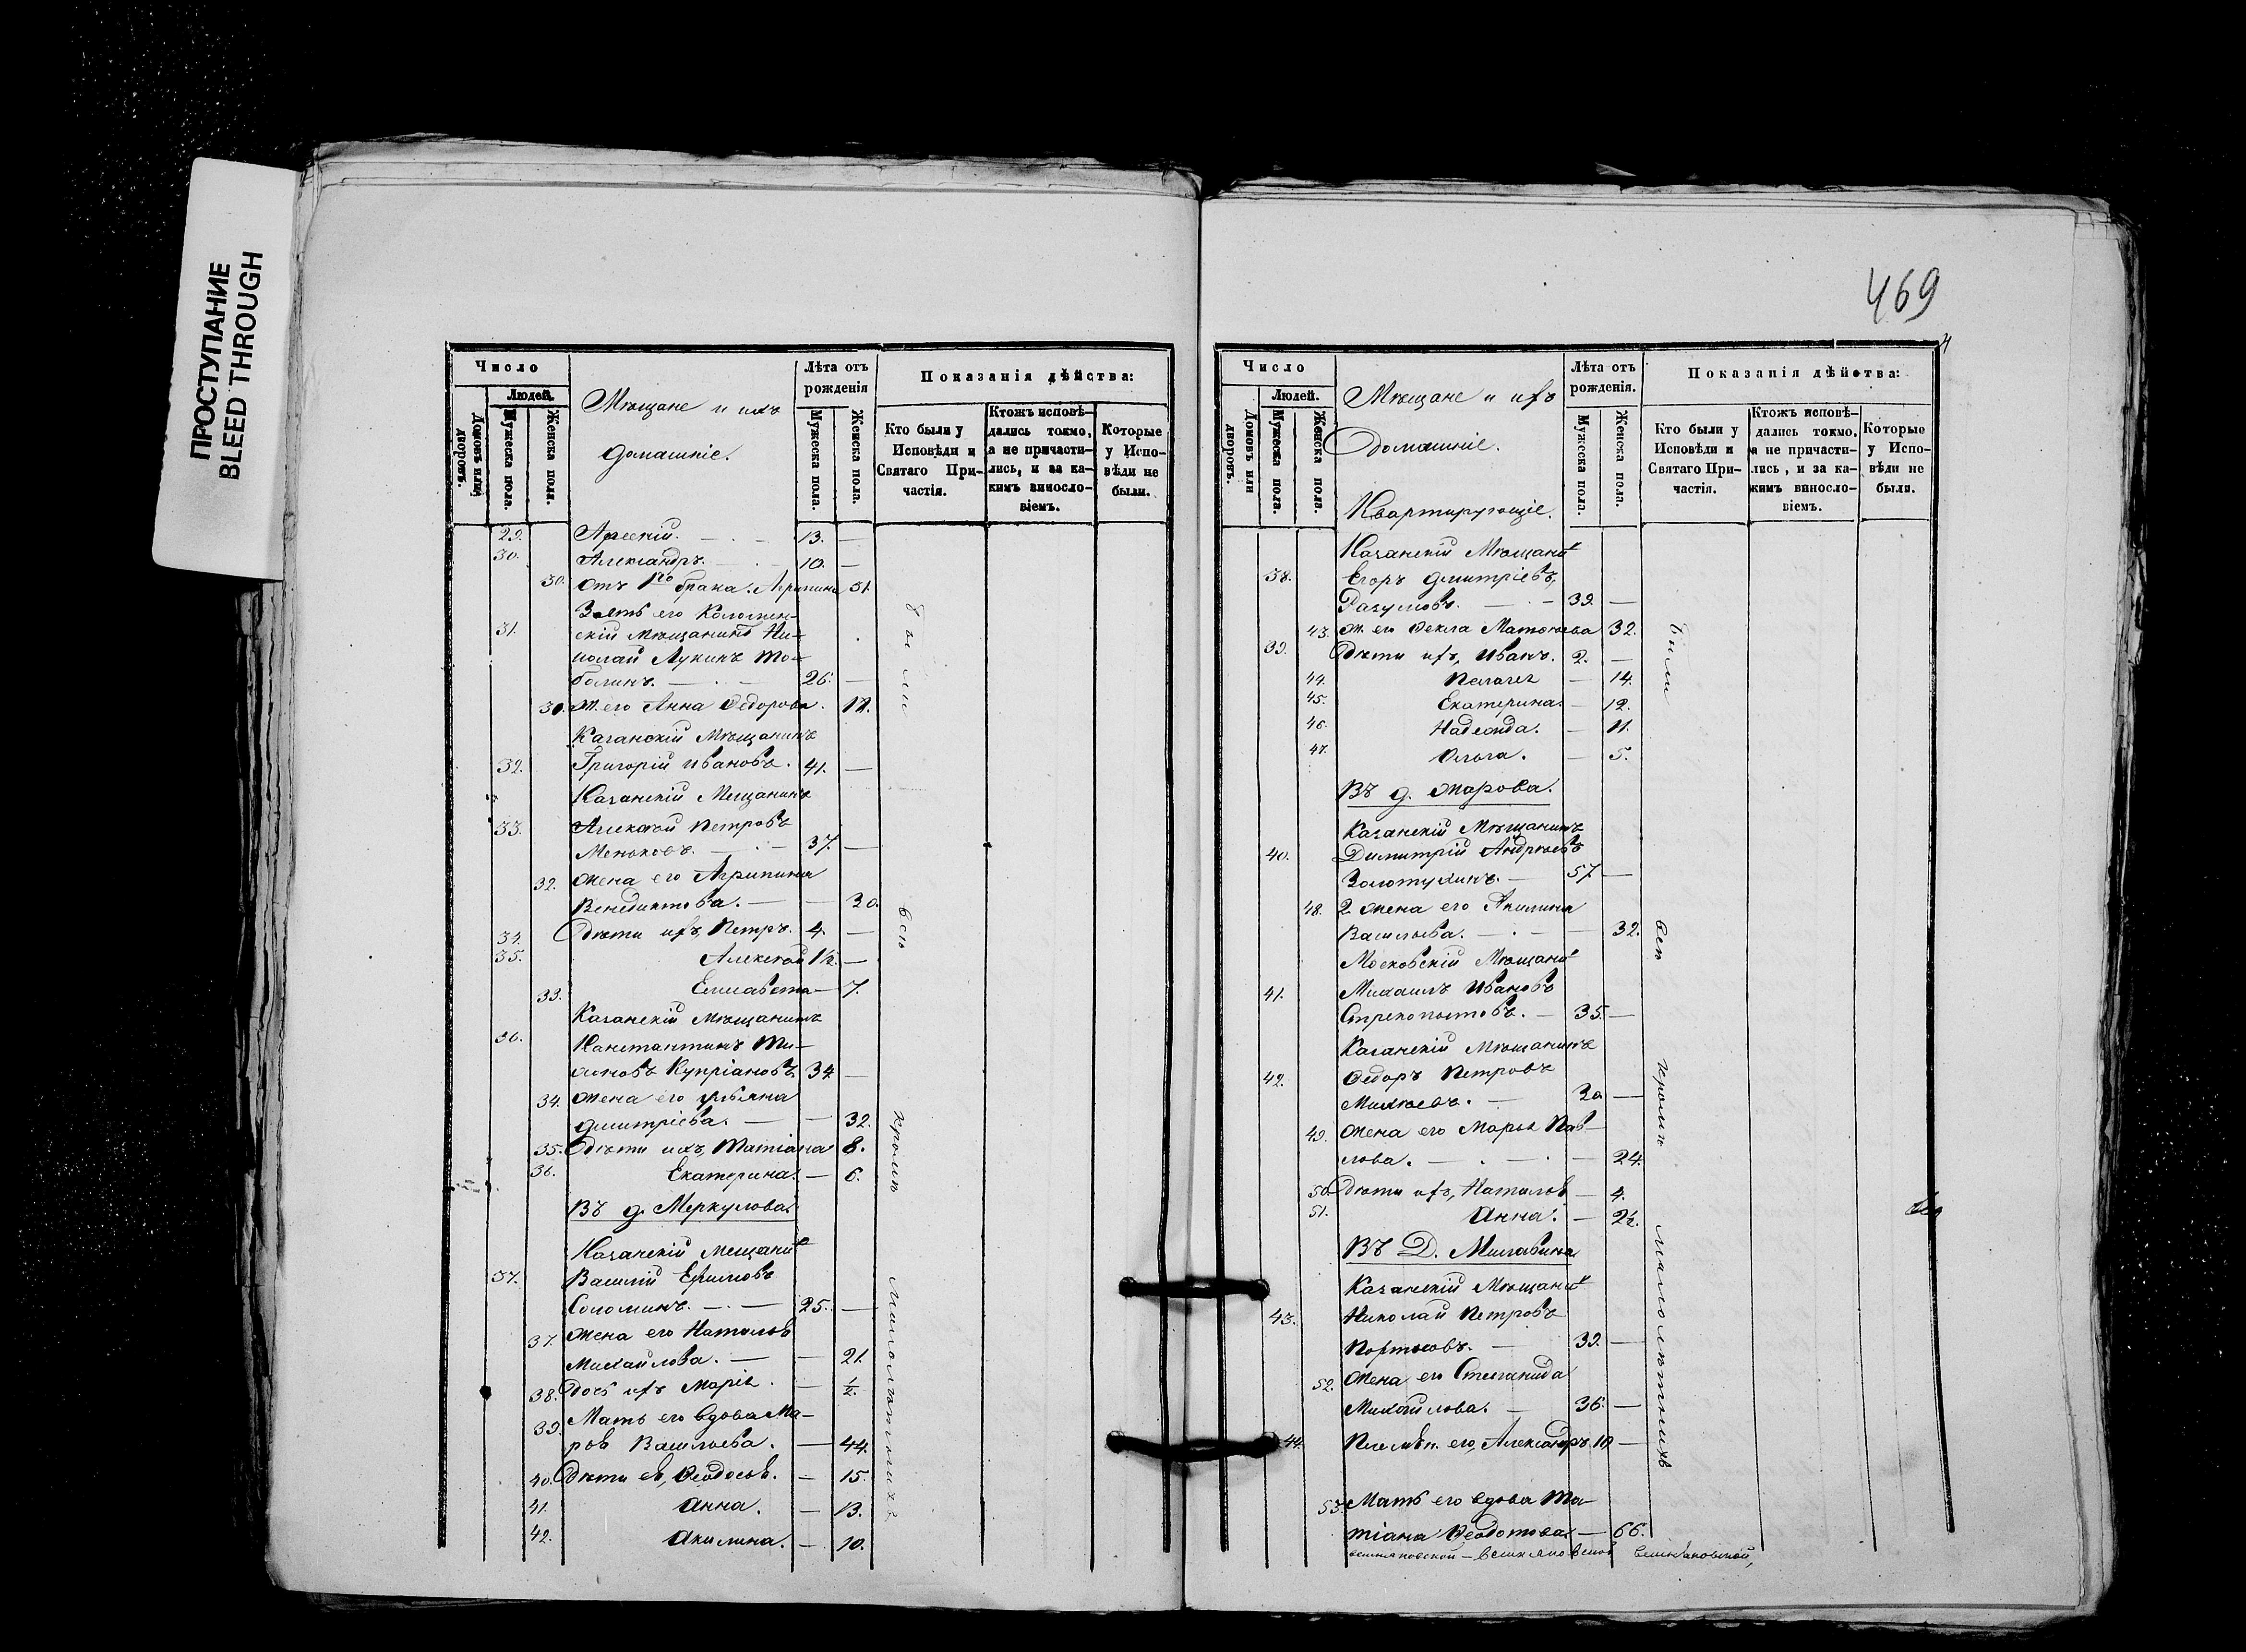 ПРОСТУПАНИЕ
BLEED THROUGH
Число
Людей.
Домовъ или дворовъ.
Мужеска пола.
Женска пола.
Мѣщане и ихъ
домашніе.
Лѣта отъ
рожденія
Мужеска пола.
Женска пола.
Показанія дѣйства:
Кто были у
Исповѣди и
Святаго При-
частія.
Ктожъ исповѣ-
дались токмо,
а не причасти-
лись, и за ка-
кимъ винносло-
віемъ.
Которые
у Испо-
вѣди не
были.
29. Арсеній. — 13. —
30. Александръ. — 10. —
30. Отъ 1го брака. Агрипина 51.
Зять его Коломен-
31. скій мѣщанинъ Ни-
колай Лукинъ То-
болинъ. — 26. —
30. Ж. его Анна Ѳедорова. 17.
Казанскій Мѣщанинъ
32. Григорій Ивановъ. 41. —
Казанскій Мещанинъ
33. Алексѣй Петровъ
Меньковъ. — 37. —
32. Жена его Агрипина
Венедиктова. — — 30.
34. Дѣти ихъ, Петръ. 4. —
35. Алексѣй 1½. —
33. Елисавета — 7.
Казанскій Мѣщанинъ
36. Констинтинъ Ти-
Купріановъ 34 —
34. Жена его Ульяна
Дмитріева. — — 32.
35. Дѣти ихъ, Татіана 8.
36. Екатерина. — 6.
Въ д. Меркулова.
Казанскій мещанинъ
37. Василій Ефимовъ
Соломинъ. — 25. —
37. Жена его Наталья
Михайлова. — — 21.
38. Дочь ихъ Марія. — ½.
39. Мать его вдова Ма-
ря Васильева. — 44.
40. Дѣти ея, Ѳеодосья. — 15.
41. Анна. — 13.
42. Акилина. — 10.
были
всѣ
кромѣ
малолѣтнихъ
469
Число
Людей.
Домовъ или дворовъ.
Мужеска пола.
Женска пола.
Мѣщане и ихъ
Домашніе.
Квартирующіе.
Лѣта отъ
рожденія.
Мужеска пола.
Женска пола.
Показанія дѣйства:
Кто были у
Исповѣди и
Святаго При-
частія.
Ктожъ исповѣ-
дались токмо,
а не причасти-
лись, и за ка-
кимъ винносло-
віемъ.
Которые
у Испо-
вѣди не
были.
Казанскій Мѣщанинъ
38. Егоръ Дмитріевъ,
Разумовъ. — 39. —
43. Ж. его Ѳекла Матѳѣева 32.
39. Дѣти ихъ, Иванъ. 2. —
44. Пелагея — 14.
45. Екатерина. — 12.
46. Надежда. — 11.
47. Ольга. — 5.
Въ д. Жарова.
Казанскій Мѣщанинъ
40. Димитрій Андреевъ
Золотухинъ. — 57 —
48. 2. Жена его Акилина
Васильева. — — 32.
Московскій Мѣщанинъ
41. Михаилъ Ивановъ
35. —
Казанскій Мѣщанинъ
42. Ѳедоръ Петровъ
Михѣевъ. — 30 —
49. Жена его Марья Пав-
лова. — — 24.
50. Дѣти ихъ, Наталья — 4.
51. Анна. — 2½.
Въ Д. Милавина
Казанскій Мѣщанинъ
43. Николай Петровъ
39. —
52. Жена его Степанида
Михайлова. — 36. —
44. Племян. его, Александръ 10 —
53. Мать его вдова Та-
тіана Ѳеодотова. — 66.
были
всѣ
кромѣ
малолѣтнихъ